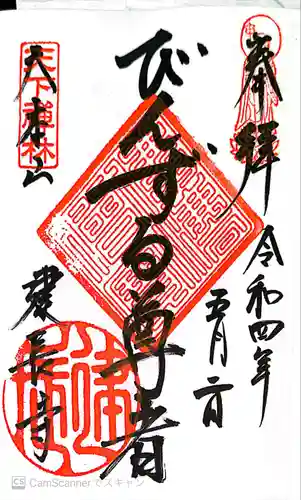 奉拝
令和四年
五月二日
びんずる尊者
天下禅林
大本山
建長寺
建長
CS CamScannerでスキャン